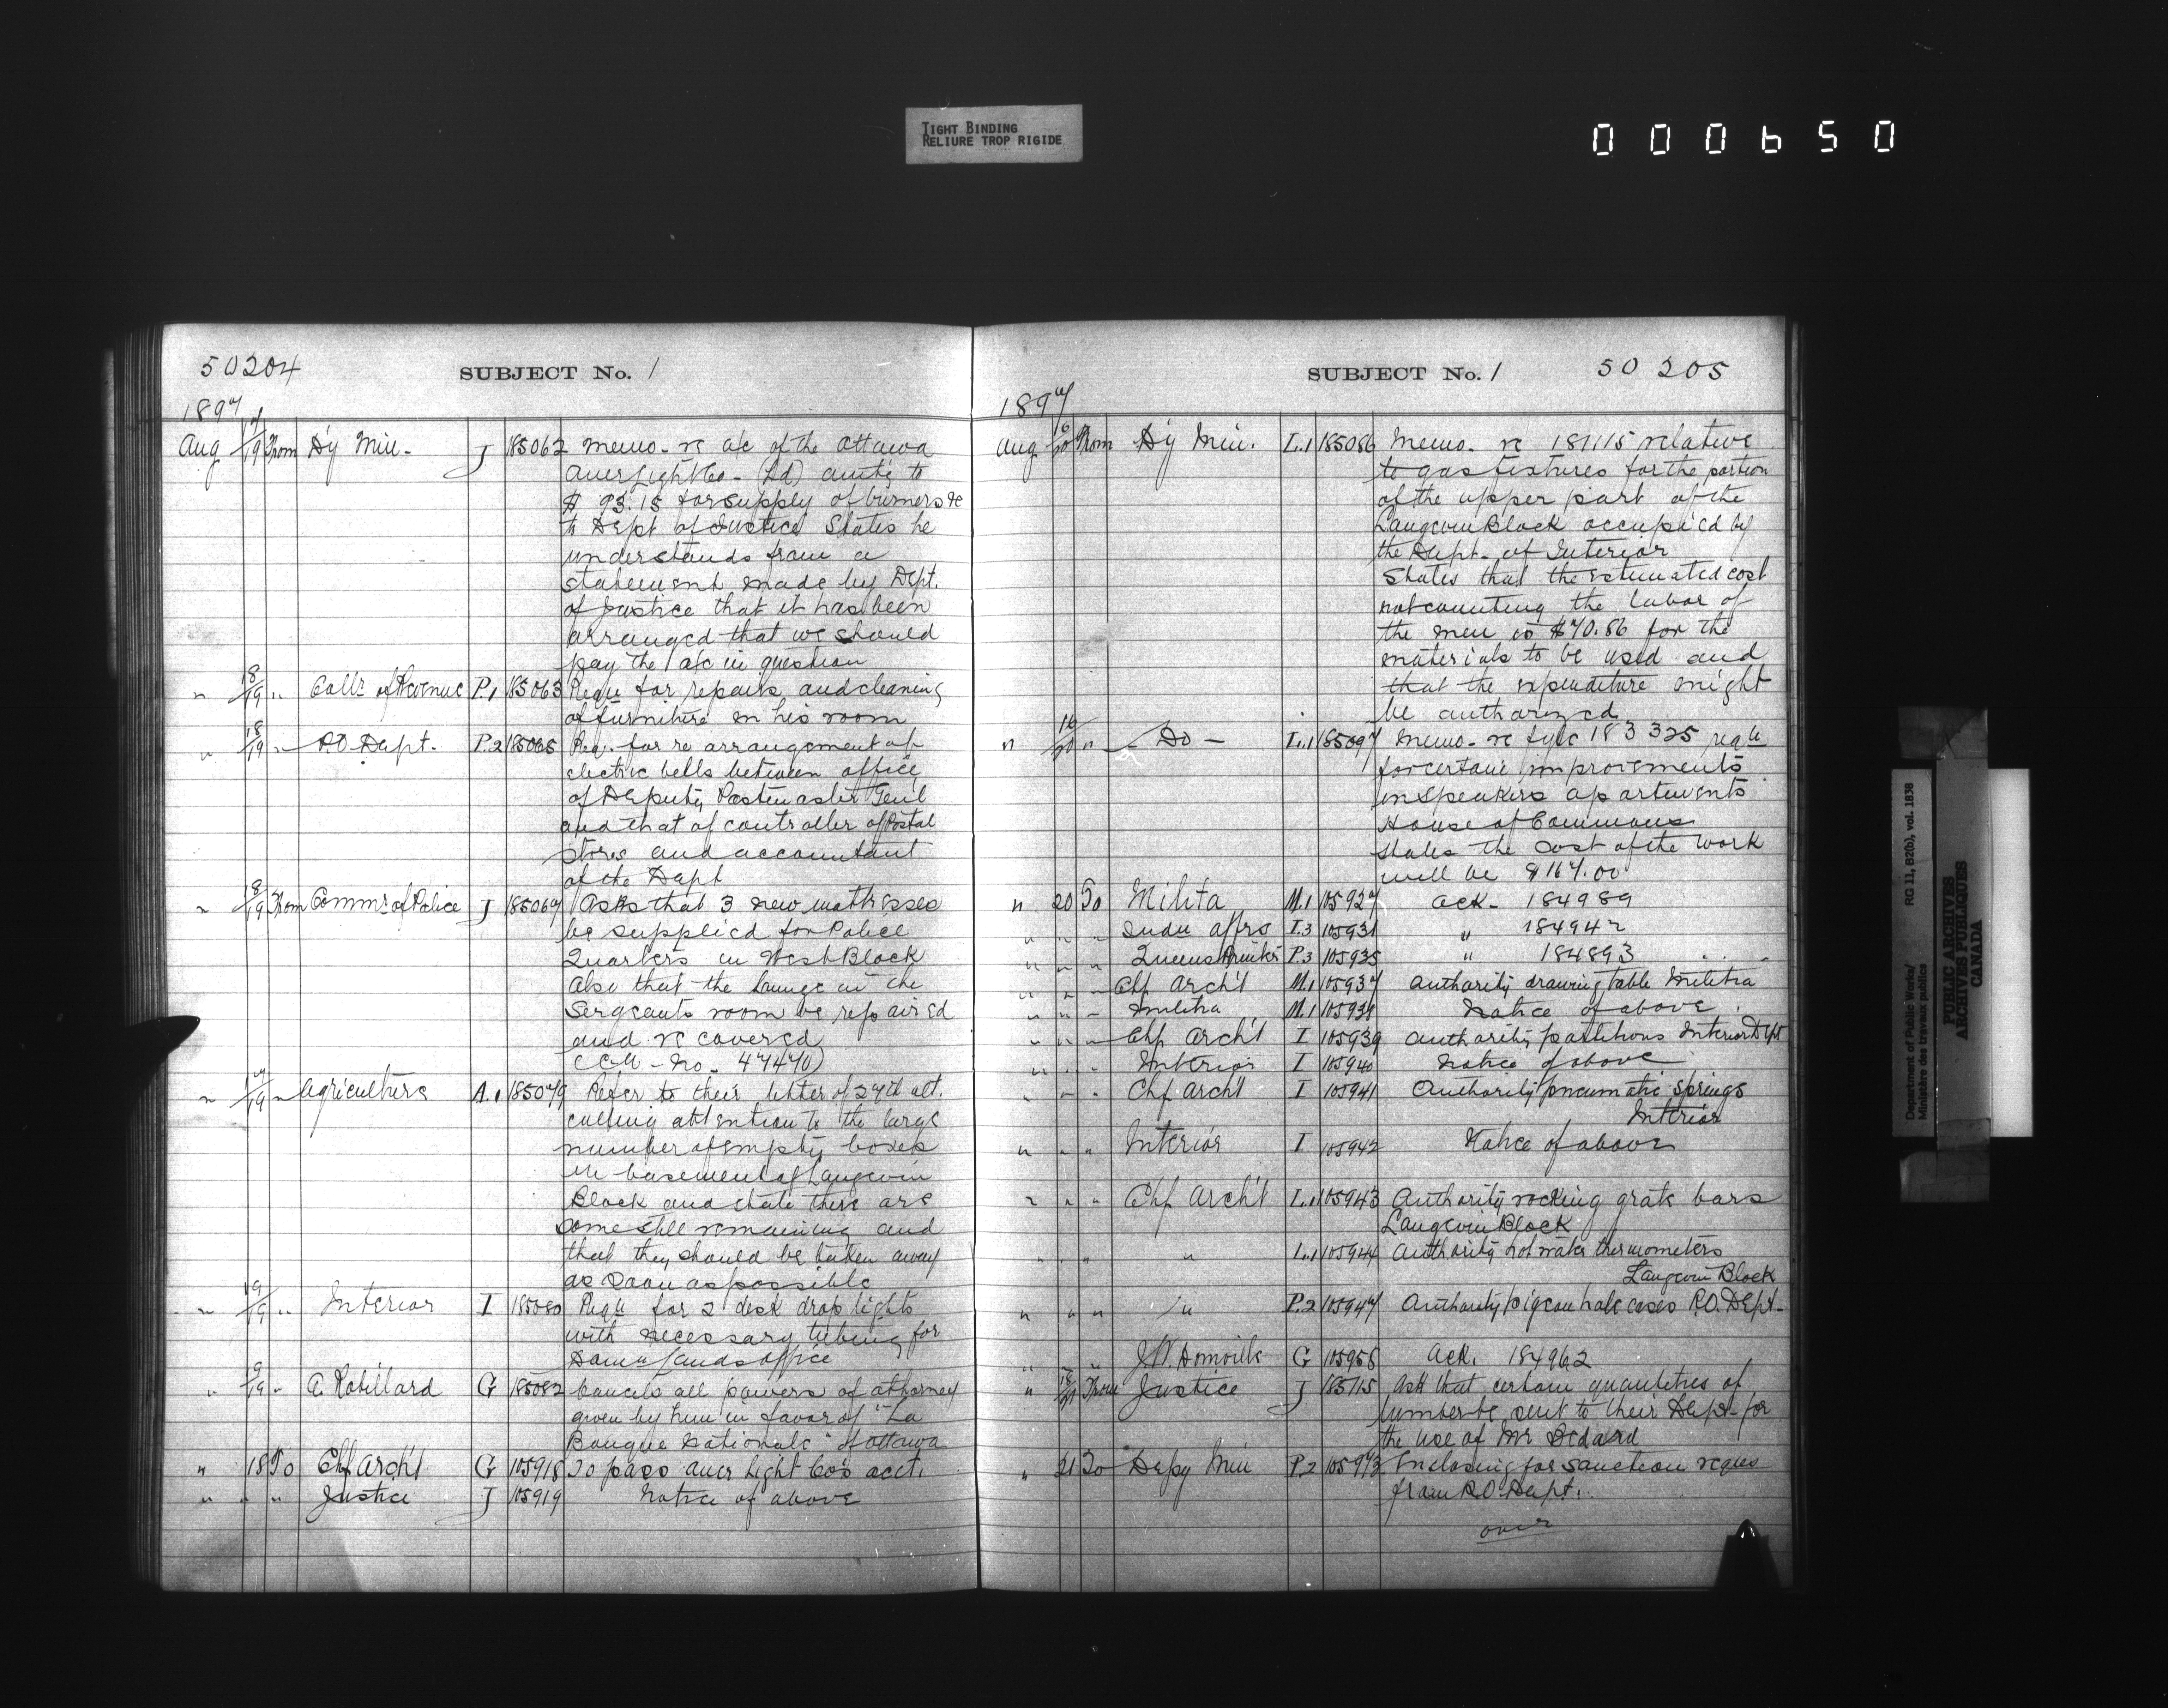 TIGHT BINDING
RELIURE TROP RIGIDE
000650
50204 SUBJECT No. 1
1897
Aug 17/19 From Dy Min. J 185062 Memo. re a/c of the Ottawa
Auer Light Co. (Ld) amtg to
$ 93.15 for supply of burners &c
to Dept of Justice States he
understands from a
statement made by Dept.
of Justice that it has been
arranged that we should
pay the a/c in question
" 18/19 " Collr of Revenue P.1 185063 Requ for repairs and cleaning
of furniture in his room
" 18/19 " P.O. Dept. P.2 185065 Req. for re arrangement of
electric bells between office
of Deputy Postmaster Genl
and that of controller of Postal
stores and accountant
of the Dept
" 18/19 From Commr of Police J 185067 Asks that 3 new mattresses
be supplied for Police
Quarters in West Block
Also that the lounge in the
Sergeants room be repaired
and re covered
No. 47470)
" 17/19 " Agriculture A.1 185079 Refer to their letter of 27th ult.
calling attention to the large
number of empty boxes
in basement of Langevin
Block and state there are
some still remaining and
that they should be taken away
as soon as possible
" 19/19 " Interior I 185080 Requ for 2 desk drop lights
with necessary tubing for
Domn Lands office
" 9/19 " A. Robillard G 185082 Cancels all powers of attorney
given by him in favor of "La
Banque Nationale" of Ottawa
" 18 To Chf Archt G 105918 To pass Auer Light Co's acct.
" " " Justice J 105919 Notice of above
SUBJECT No. 1 50205
1897
Aug 16/20 From Dy Min. L.1 185086 Memo. re 181115 relative
to gas fixtures for the portion
of the upper part of the
Langevin Block occupied by
the Dept. of Interior
States that the estimated cost
not counting the labor of
the men is $70.86 for the
materials to be used and
that the expenditure might
be authorized
" 16/20 " - Do - L.1 185097 Memo. re 183325 requ
for certain improvements
in Speakers apartments
House of Commons
States the cost of the work
will be $167.00
" 20 To Militia M.1 105927 Ack. 184989
" " " Indn Affrs I.3 105931 " 184942
" " " Queens Printer P.3 105935 " 184893
" " " Chf Archt M.1 105937 Authority drawing table Militia
" " " Militia M.1 105938 Notice of above
" " " Chf Archt I 105939 Authority partitions Interior Dept
" " " Interior I 105940 Notice of above
" " " Chf Archt I 105941 Authority pneumatic springs
Interior
" " " Interior I 105942 Notice of above
" " " Chf Archt L.1 105943 Authority rocking grate bars
Langevin Block
" " " " L.1 105944 Authority hot water thermometers
Langevin Block
" " " " P.2 105947 Authority pigeon hole cases P.O. Dept.
" " " J.W. Domville G 105958 Ack. 184962
" 18/21 From Justice J 185115 Ask that certain quantities of
lumber be sent to their Dept. for
the use of Mr Bedard
" 21 To Depy Min P.2 105973 Enclosing for sanction reques
from P.O. Dept.
over
Department of Public Works/
Ministère des travaux publics
RG 11, B2(b), vol. 1838
PUBLIC ARCHIVES
ARCHIVES PUBLIQUES
CANADA